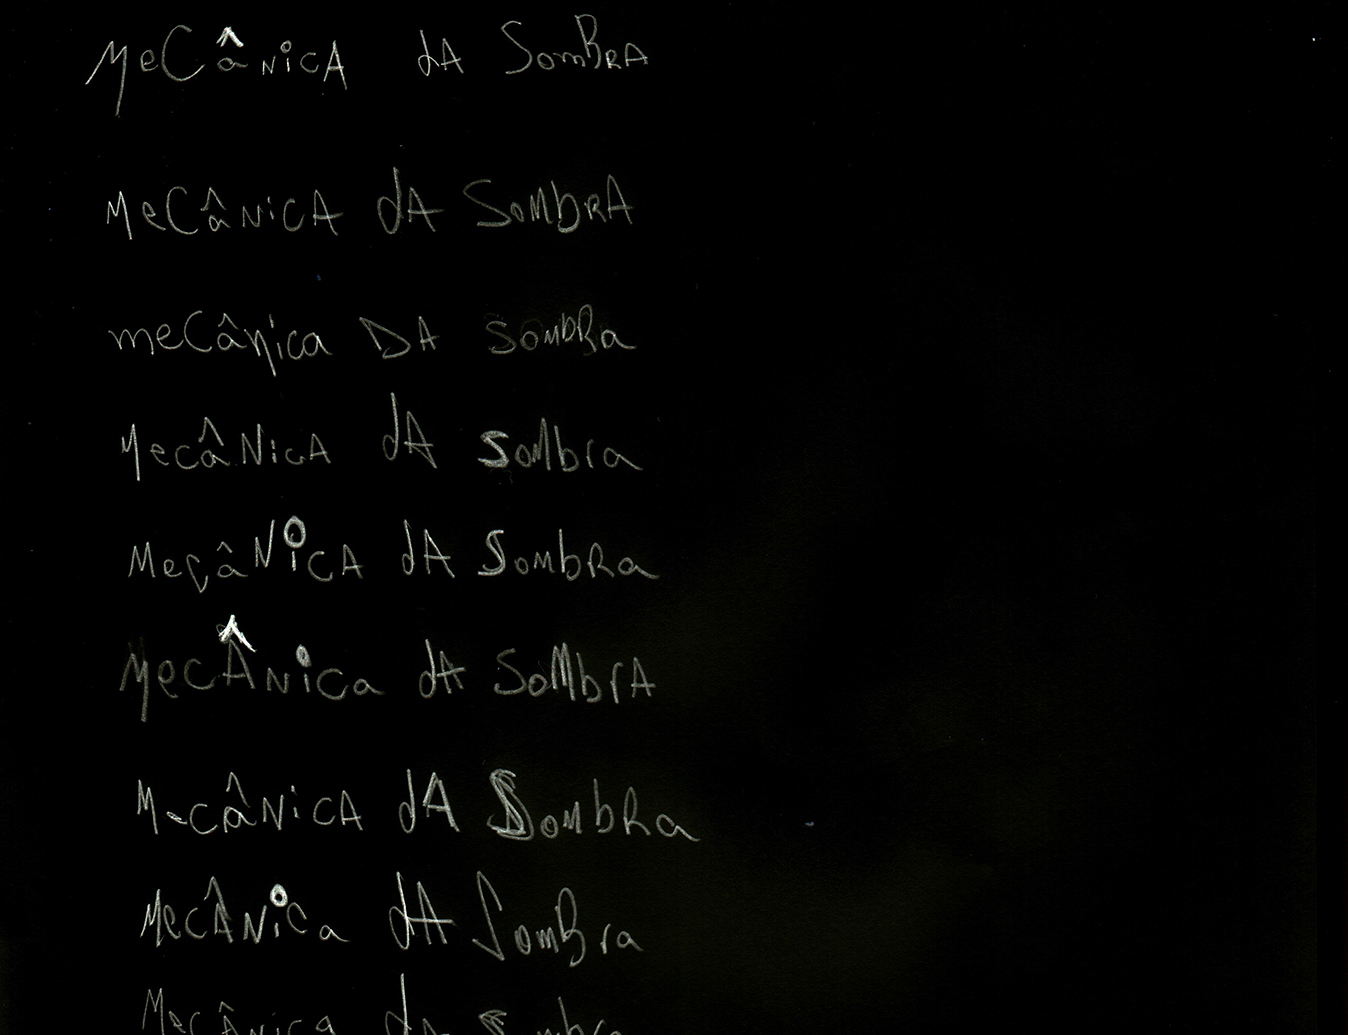 MeCânicA dA SomBRA
MeCâNiCA dA SoMbRA
meCânica DA sombRa
MecâNicA dA soMbra
MeçâNiCA dA SombRa
MecÂNiCa dA SoMbrA
MecâNiCA dA SombRa
MecÂNica dA SomBra
MecÂnica da sombra